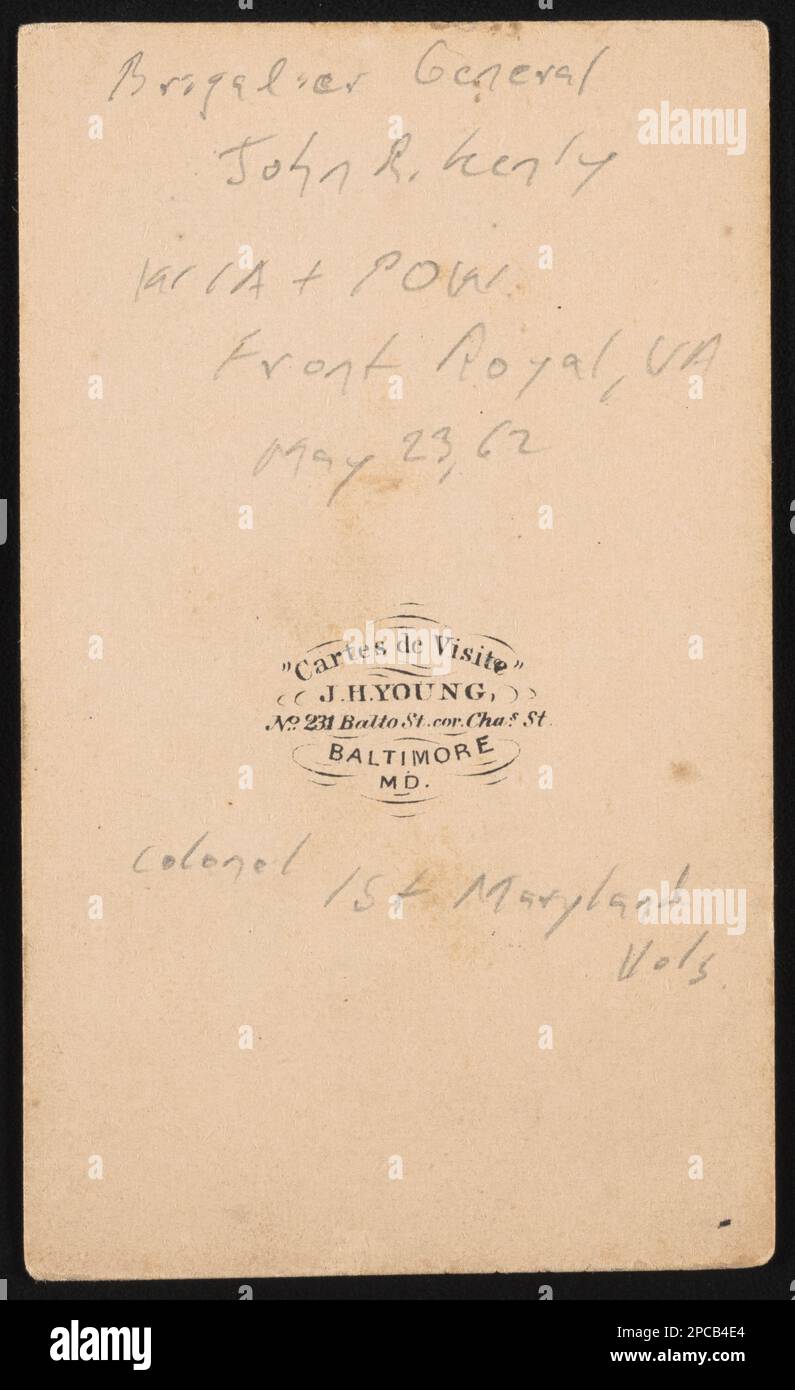 Brigadier General
John R. Kenly
WIA + POW
Front Royal, VA
May 23, 62
"Cartes de Visite"
J.H. YOUNG,
No. 231 Balto St. cor. Chas. St.
BALTIMORE
MD.
Colonel
1st Maryland
Vols.
alamy
alamy
Image ID: 2PCB4E4
www.alamy.com